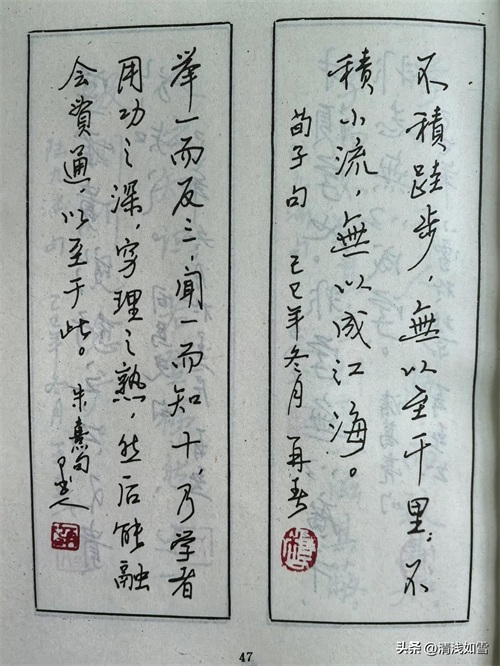 不積跬步，無以至千里；不
積小流，無以成江海。
荀子句　己巳年冬月　再春
举一而反三，闻一而知十，乃学者
用功之深，穷理之熟，然后能融
会貫通，以至于此。朱熹句
47
头条 @清浅如雪